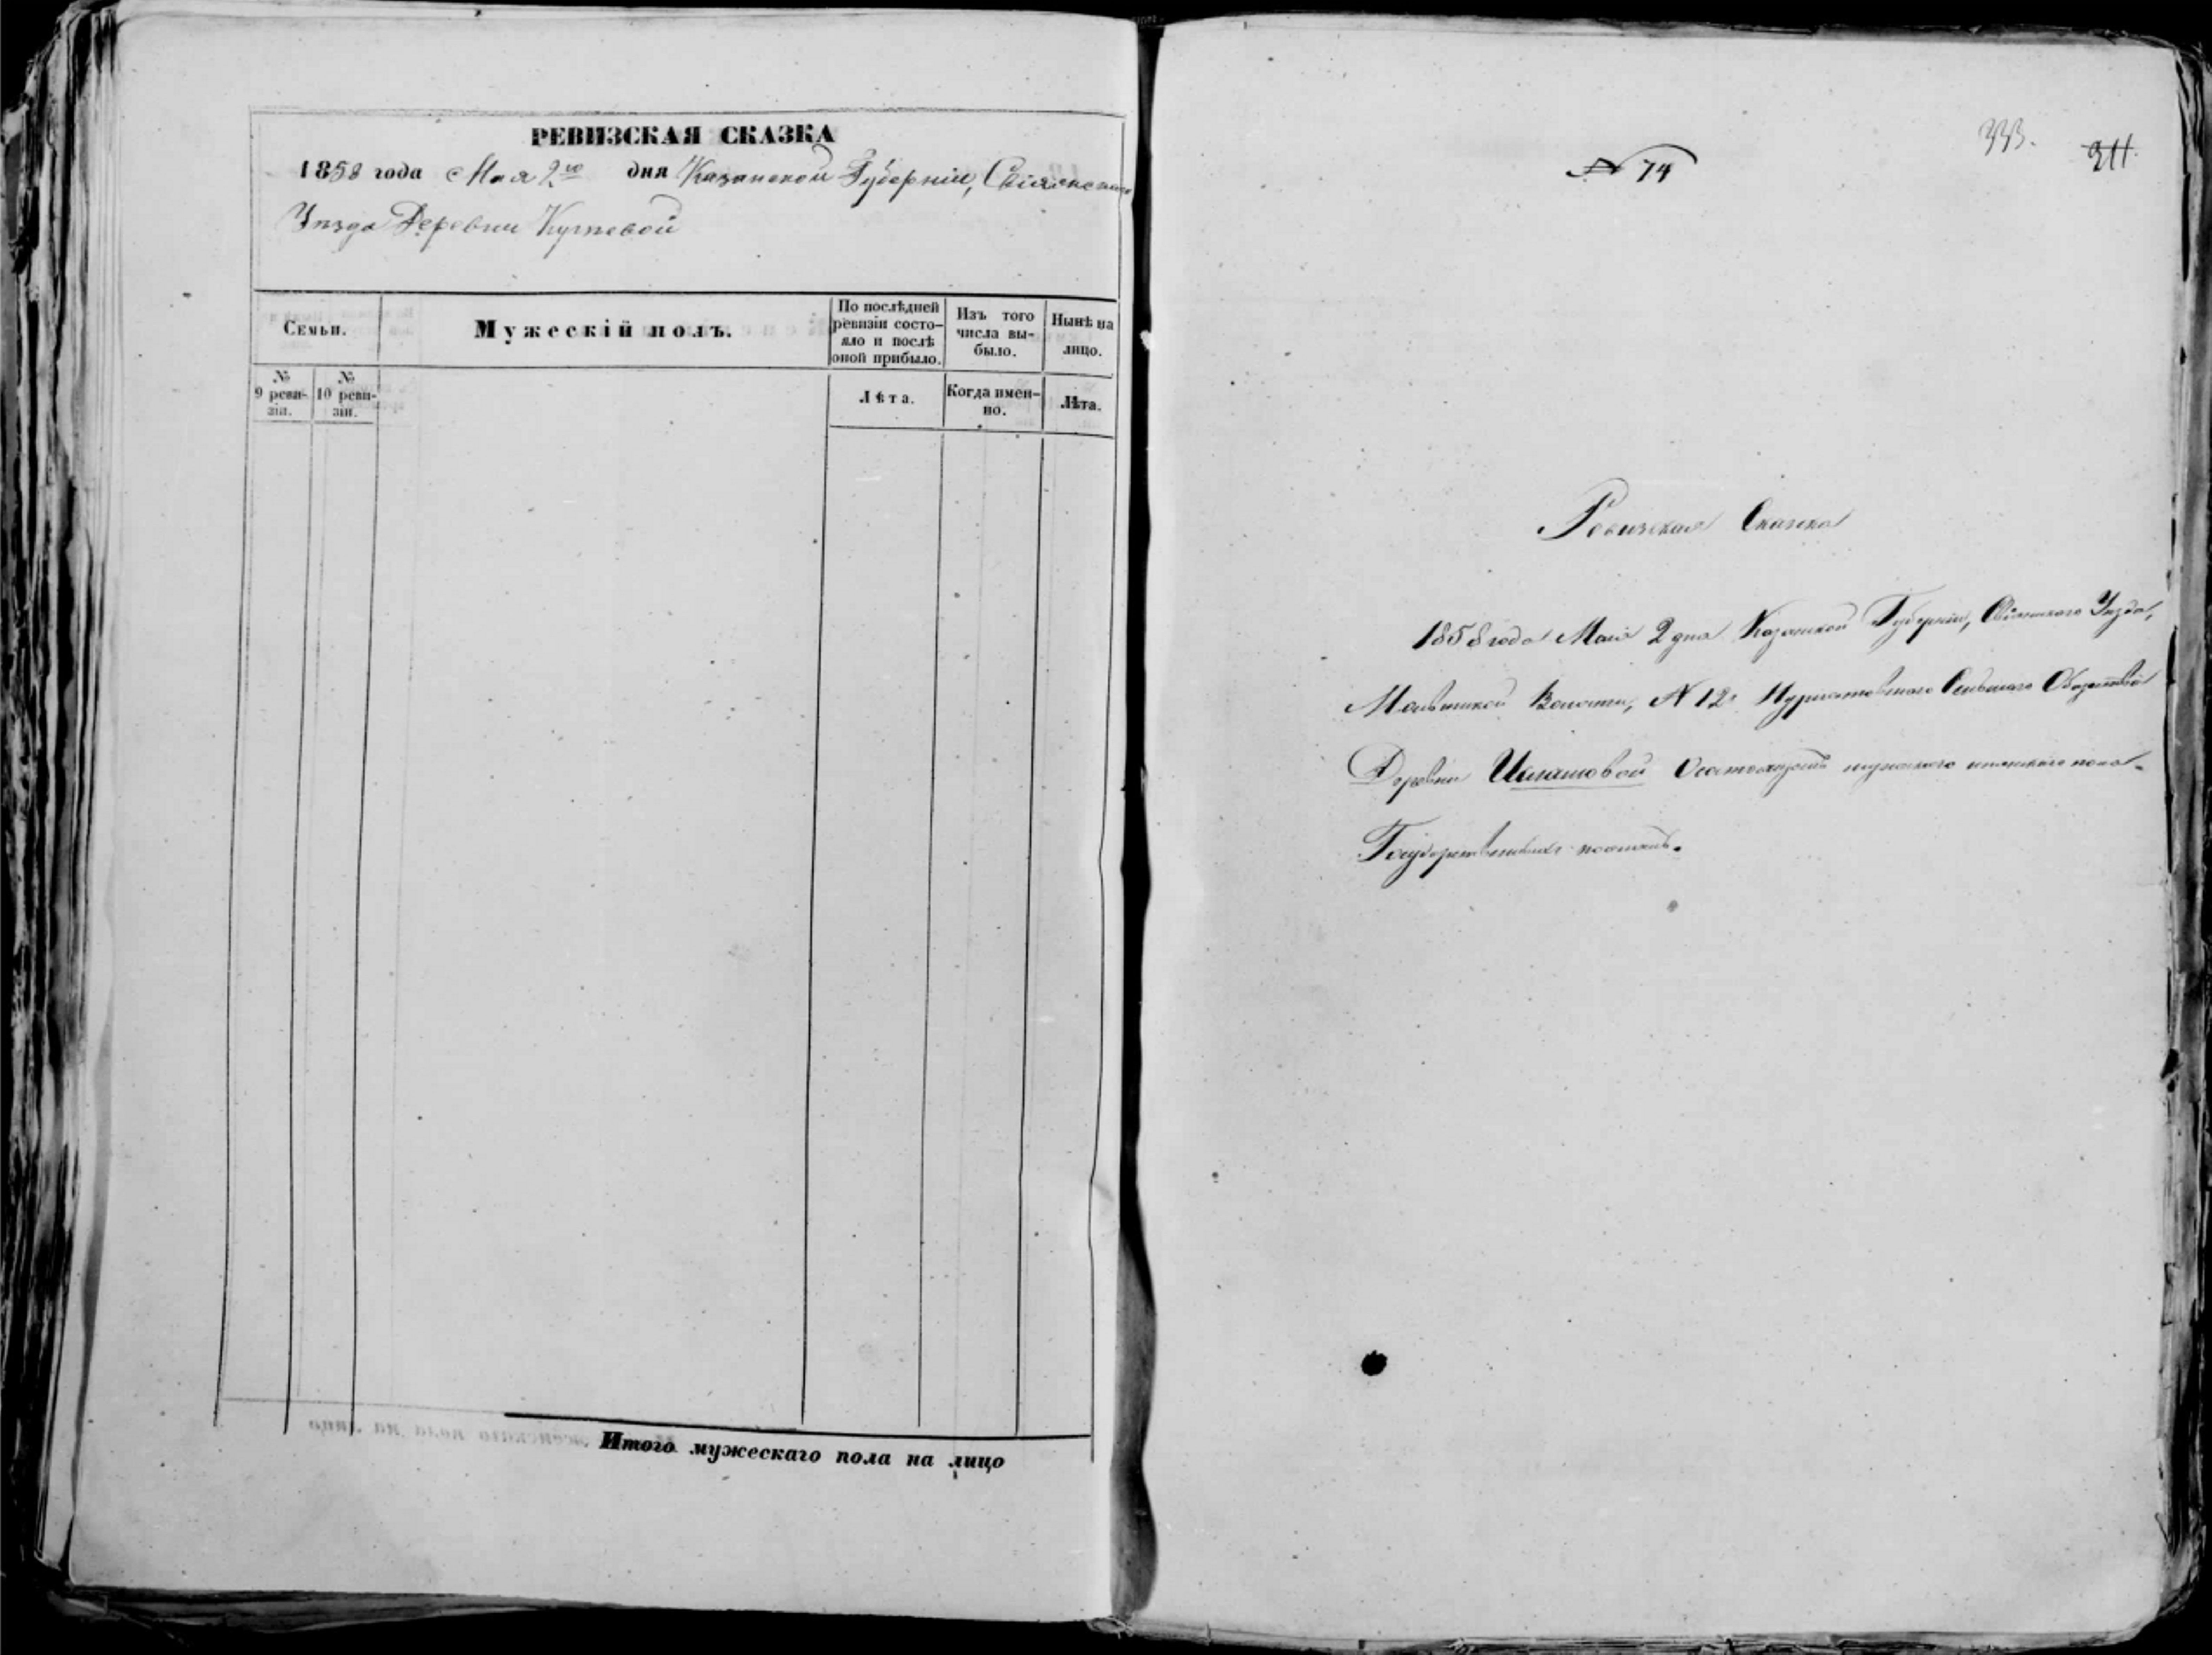 РЕВИЗСКАЯ СКАЗКА
1858 года Мая 2го дня Казанской Губерніи, Свіяжскаго
Уѣзда Деревни Кугѣевой
Семьи.
Мужескій полъ.
По послѣдней ревизіи состо-
яло и послѣ оной прибыло.
Изъ того числа вы-
было.
Нынѣ на лицо.
№ 9 реви-
зіи.
№ 10 реви-
зіи.
Лѣта.
Когда имен-
но.
Лѣта.
Итого мужескаго пола на лицо
№ 74
333.
311.
Ревизская Сказка
1858 года Маія 2 дня Казанской Губерніи, Свіяжскаго Уѣзда,
Волости, № 12. Нурлатовскаго Сельскаго Общества
Деревни Ислатовой О состоящихъ мужскаго и женскаго пола
Государственныхъ